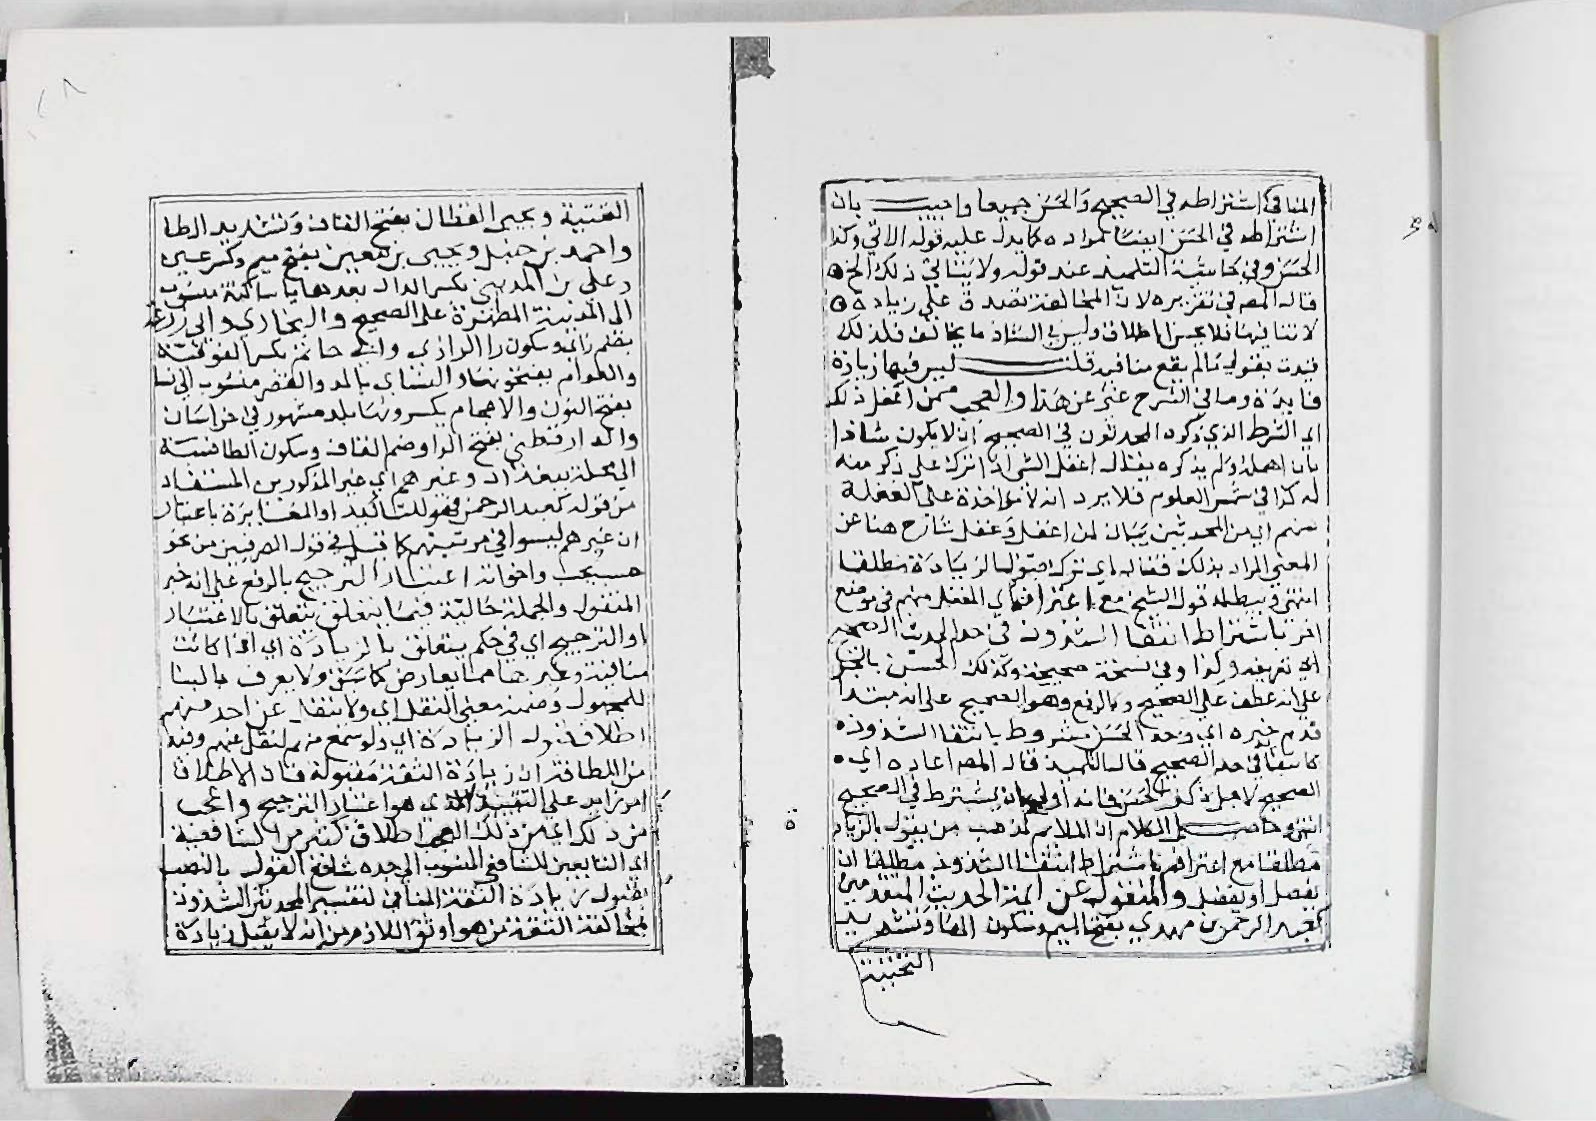 المنافي اشتراطه في الصحيح والحسن جميعا واجيب بان
اشتراطه في الحسن ايضا مراده كما يدل عليه قوله الاتي وكذا
الحسن وفي حاشية التلميذ عند قوله ولا يتاتى ذلك الخ
قال المص في تقريره لان المخالفة تصدق على زيادة
لا تنافي فيها فلا يحسن الاطلاق وليس في الشاذ ما يخالف فلذلك
قيدت بقولي ما لم يقع منافية قلت ليس فيها زيادة
فايدة وما في الشرح غني عن هذا والعجب ممن اغفل ذلك
اي الشرط الذي ذكره المحدثون في الصحيح ان لا يكون شاذا
بان اهمله ولم يذكره يقال اغفل الشي اذا تركه على ذكر منه
له كذا في شمس العلوم فلا يرد انه لا مؤاخذة على الغفلة
منهم اي من المحدثين بيان لمن اغفل وغفل شارح هنا عن
المعنى المراد بذلك فقال اي ترك قبول الزيادة مطلقا
انتهى ويبطله قول الشيخ مع اعترافه اي المغفل منهم في موضع
اخر باشتراط انتفا الشذوذ في حد الحديث الصحيح
اي تعريفه وكذا وفي نسخة صحيحة وكذلك الحسن بالجر
على انه عطف على الصحيح وبالرفع وهو الصحيح على انه مبتدا
قدم خبره اي وحد الحسن مشروط بانتفا الشذوذ
كما سبق في حد الصحيح قال التلميذ قال المص اعاده اي
الصحيح لاجل ذكر الحسن فانه اولى بان يشترط في الصحيح
انتهى وحاصل الكلام ان الملايم لمذهب من يقول بالزيادة
مطلقا مع اعترافه باشتراط انتفا الشذوذ مطلقا ان
يفصل او يفضل والمنقول عن ايمة الحديث المتقدمين
كعبد الرحمن بن مهدي بفتح الميم وسكون الها وتشديد
التحتية
التحتية ويحيى القطان بفتح القاف وتشديد الطا
واحمد بن حنبل ويحيى بن معين بفتح ميم وكسر عين
وعلي بن المديني بكسر الدال بعدها يا ساكنة منسوب
الى المدينة المطهرة على الصحيح والبخاري وابي زرعة
بضم زاي وسكون را الرازي وابي حاتم بكسر الفوقية
والعوام يفتحونها والنسائي بالمد والقصر منسوب الى نسا
بفتح النون والاعجام يكسرونها بلد مشهور في خراسان
والدارقطني بفتح الرا وضم القاف وسكون الطا نسبة
الى محلة ببغداد وغيرهم اي غير المذكورين المستفاد
من قوله كعبد الرحمن فهو للتاكيد او المغايرة باعتبار
ان غيرهم ليسوا في مرتبتهم كما قيل في قول الصرفيين من نحو
واخواته اعتبار الترجيح بالرفع على انه خبر
المنقول والجملة حالية فيما يتعلق يتعلق بالاعتبار
او الترجيح اي في حكم يتعلق بالزيادة اي اذا كانت
منافية وغيرها مما يعارض كما سبق ولا يعرف بالبنا
للمجهول وضمنه معنى النقل اي ولا ينقل عن احد منهم
اطلاق قبول الزيادة اي ولو سمع منهم لنقل عنهم وفيه
من اللطافة ان زيادة الثقة مقبولة فان الاطلاق
امر زايد على التقييد الذي هو اعتبار الترجيح واعجب
من ذلك اي من ذلك العجب اطلاق كثير من الشافعية
اي التابعين للشافعي المنسوب الى جده شافع القول بالنصب
بقبول زيادة الثقة المنافي لتفسير المحدثين الشذوذ
بمخالفة الثقة من هو اوثق اللازم من انه لا يقبل زيادة